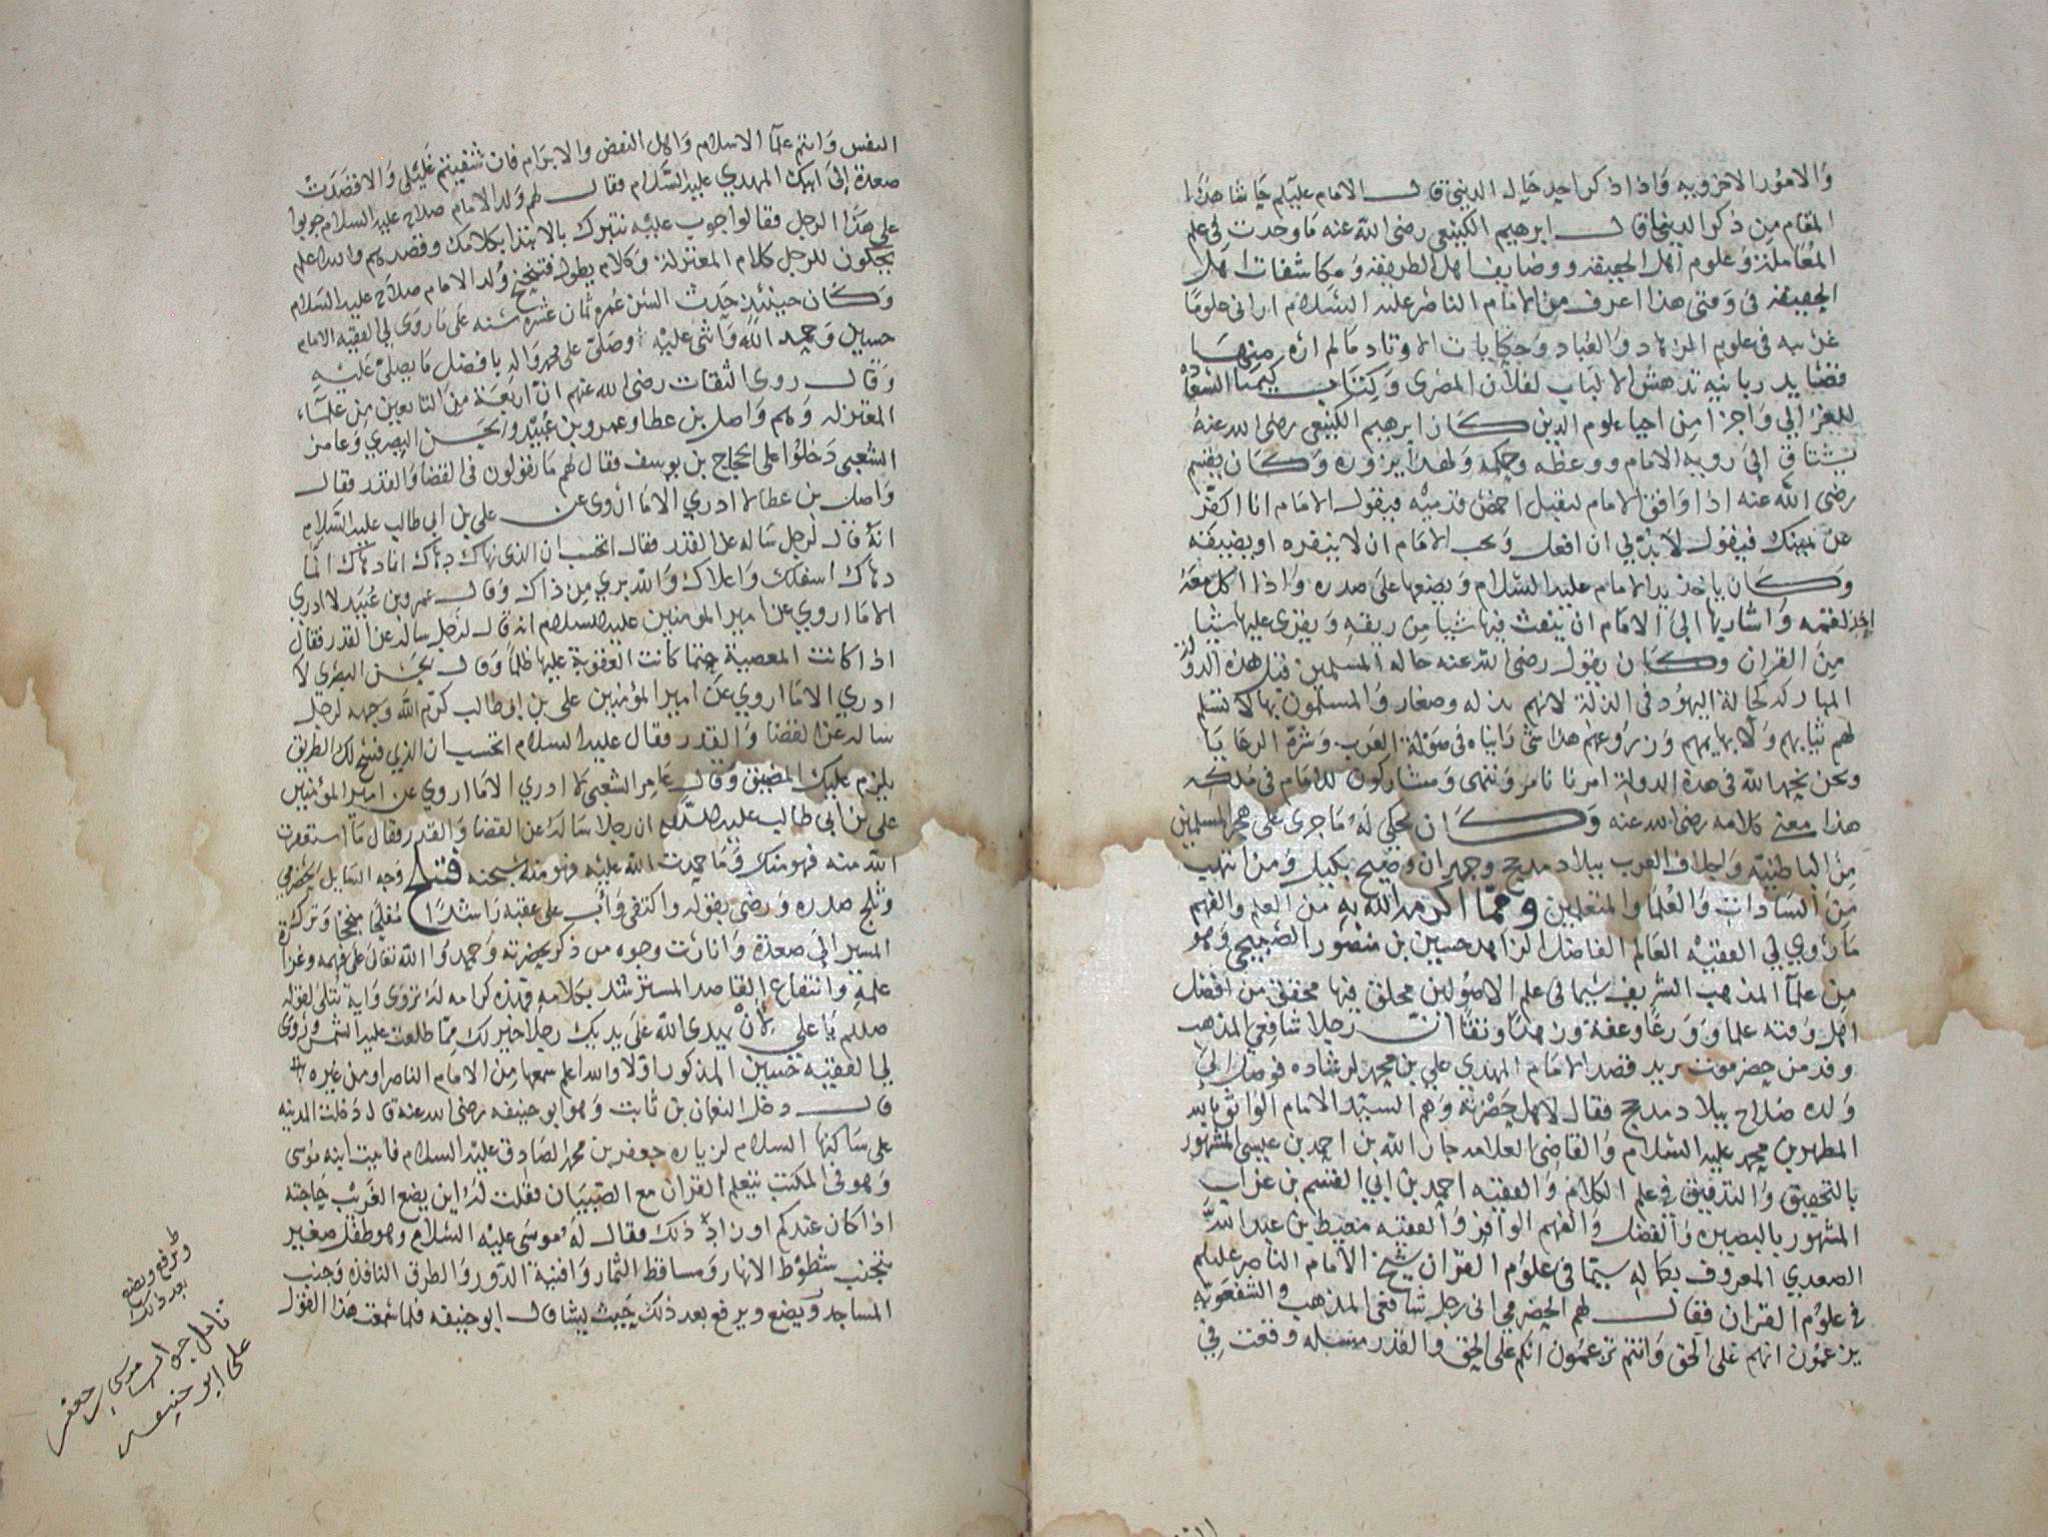 والامور الاخرويه واذا ذكر احد حال الدنيا قال الامام عليلم حاشا هذا
المقام من ذكر الدنيا قال ابرهيم الكينعي رضي الله عنه ما وجدت في علم
المعاملة وعلوم اهل الحقيقه ووضايف اهل الطريقه ومكاشفات اهل
الحقيقه في وقتي هذا اعرف من الامام الناصر عليه السلام اراني علوما
غريبه في علوم الزهاد والعباد وحكايات الاوتاد مالم اره منها
قصايد ربانيه تدهش الالباب لفلان المصرى وكتاب كيميا السعاده
للغزالي واجزا من احيا علوم الدين كان ابرهيم الكينعي رضي الله عنه
يشتاق الى رويه الامام ووعظه وحكمه ولهذا يزوره وكان يقسم
رضي الله عنه اذا وافق الامام ليقبل اخمص قدميه فيقول الامام انا اكفر
عن يمينك فيقول لا بد لي ان افعل ويحب الامام ان لا ينفره او يضيقه
وكان ياخذ يد الامام عليه السلام ويضعها على صدره واذا اكل معه
اخذ لقمه واشار بها الى الامام ان ينفث فيها شيا من ريقه ويقرى عليها شيا
من القران وكان يقول رضي الله عنه حاله المسلمين قبل هذه الدولة
المباركه كحالة اليهود في الذلة لانهم بذله وصغار والمسلمون بها لا تسلم
لهم ثيابهم ولا بهايمهم وزروعهم هذا شي راينا في صولة العرب وشرة الرعايا
ونحن بحمد الله في هذه الدولة امرنا نامر وننهى ومشاركون للامام في ملكه
هذا معنى كلامه رضي الله عنه وكان يحكي له ما جرى على هجر المسلمين
من الباطنيه واجلاف العرب ببلاد مذحج وجهران وصيح بكيل ومن انتهب
من السادات والعلما والمتعلمين ومما اكرمه الله به من العلم والفهم
ما روى لي الفقيه العالم الفاضل الزاهد حسين بن منصور الضبيحي وهو
من علما المذهب الشريف سيما في علم الاصولين محلق فيها محقق من افضل
اهل وقته علما وورعا وعفة وزهدا ونقا ان رجلا شافعي المذهب
وفد من حضرموت يريد قصد الامام المهدي علي بن محمد لرشاده فوصل الى
ولده صلاح ببلاد مذحج فقال لاهل حضرته وهم السيد الامام الواثق بالله
المطهر بن محمد عليه السلام والقاضي العلامه جار الله بن احمد بن عيسى المشهور
بالتحقيق والتدقيق في علم الكلام والفقيه احمد بن ابي القسم بن عزاب
المشهور بالبصيره والفضل والفهم الوافر والفقيه معيط بن عبد الله
الصعدي المعروف بكماله سيما في علوم القران شيخ الامام الناصر عليلم
في علوم القران فقال لهم الحضرمي اني رجل شافعي المذهب والشفعويه
يزعمون انهم على الحق وانتم تزعمون انكم على الحق والقدر مسله وقعت في
النفس وانتم علما الاسلام واهل النقض والابرام فان شفيتم غليلي والا قصدت
صعدة الى ابيك المهدي عليه السلام فقال لهم ولد الامام صلاح عليه السلام جوبوا
على هذا الرجل فقالوا جوب عليه نتبرك بالابتدا بكلامك وقصدهم والله اعلم
يحكون للرجل كلام المعتزلة وكلام يطول فتنحنح ولد الامام صلاح عليه السلام
وكان حينئذ حدث السن عمره ثمان عشره سنه على ما روى لي الفقيه الامام
حسين وحمد الله واثنى عليه وصلى على محمد واله بافضل ما يصلى عليه
وقال روى الثقات رضي الله عنهم ان اربعة من التابعين من علماء
المعتزله وهم واصل بن عطا وعمرو بن عبيد والحسن البصري وعامر
الشعبي دخلوا على الحجاج بن يوسف فقال لهم ما تقولون في القضا والقدر فقال
واصل بن عطا لا ادري الا ما اروى عن علي بن ابي طالب عليه السلام
انه قال لرجل ساله عن القدر فقال اتحسب ان الذي نهاك دهاك انما
دهاك اسفلك واعلاك والله بري من ذاك وقال عمرو بن عبيد لا ادري
الا ما اروي عن امير المومنين عليه السلام انه قال لرجل ساله عن القدر فقال
اذا كانت المعصية حتما كانت العقوبة عليها ظلما وقال الحسن البصرى لا
ادري الا ما اروي عن امير المؤمنين علي بن ابي طالب كرم الله وجهه لرجل
ساله عن القضا والقدر فقال عليه السلام اتحسب ان الذي فسح لك الطريق
يلزم عليك المضيق وقال عامر الشعبي لا ادري الا ما اروي عن امير المؤمنين
علي بن ابي طالب عليه السلام ان رجلا ساله عن القضا والقدر فقال ما استغفرت
الله منه فهو منك وما حمدت الله عليه فهو منه سبحنه فتبلج وجه السايل الحضرمي
وثلج صدره ورضي بقوله واكتفى وآب على عقبه راشدا مفلحا منجحا وترك
المسير الى صعدة وانارت وجوه من ذكر بحضرته وحمدوا الله تعالى على فهمه وغزا
علمه وانتفاع القاصد المسترشد بكلامه فهذه كرامه له تروى وايه تتلى لقوله
صللم يا علي لان يهدى الله على يديك رجلا خير لك مما طلعت عليه الشمس وروى
لي الفقيه حسين المذكور اولا والله اعلم سمعها من الامام الناصر او من غيره
قال دخل النعمان بن ثابت وهو ابو حنيفه رضي الله عنه قال دخلت المدينه
على ساكنها السلام لزياره جعفر بن محمد الصادق عليه السلام فاتيت ابنه موسى
وهو في المكتب يتعلم القران مع الصبيان فقلت له اين يضع الغريب حاجته
اذا كان عندكم او زاد ذلك فقال له موسى عليه السلام وهو طفل صغير
يتجنب شطوط الانهار ومساقط الثمار وافنية الدور والطرق النافذه وجنب
المساجد ويضع ويرفع بعد ذلك حيث يشا قال ابو حنيفه فلما سمعت هذا القول
ويرفع ويضع
بعد ذلك
تامل جواب موسى بن جعفر
على ابو حنيفه